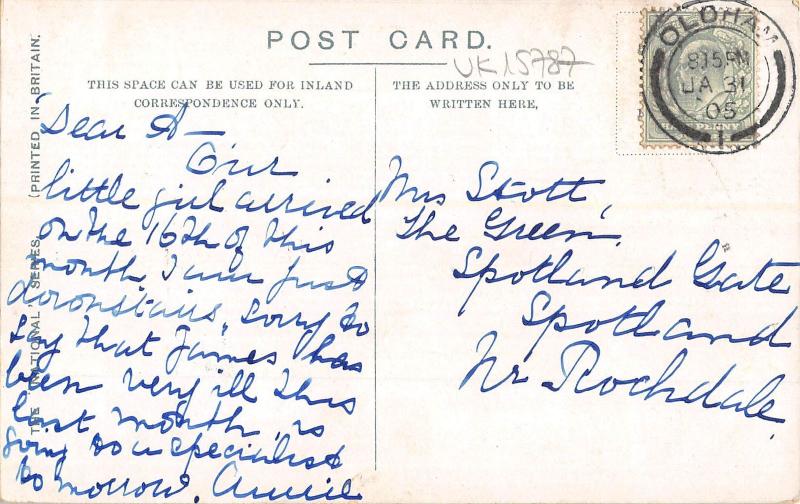 THE "NATIONAL" SERIES. (PRINTED IN BRITAIN.
POST CARD.
UK15787
THIS SPACE CAN BE USED FOR INLAND
CORRESPONDENCE ONLY.
THE ADDRESS ONLY TO BE
WRITTEN HERE,
OLDHAM
815PM
JA 31
05
1
PENNY
Dear A—
Our
little girl arrived
on the 16th of this
month, I am just
downstairs, sorry to
say that James has
been very ill this
last month, is
going to a specialist
to morrow, Annie
Mrs Stott,
The Green,
Spotland Gate
Spotland
Nr Rochdale.